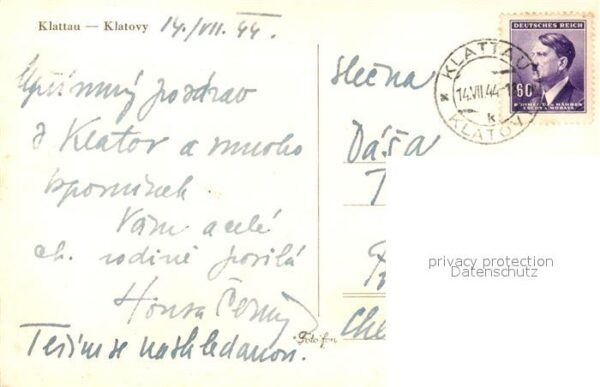 Klattau — Klatovy 14./VII. 44.
Upřímný pozdrav
z Klatov a mnoho
vzpomínek
Vám a celé
ct. rodině posílá
Honza Černý
Těším se nashledanou.
Fotofon
slečna
Dáša
DEUTSCHES REICH
60
BÖHMEN UND MÄHREN
ČECHY A MORAVA
KLATTAU
14.VII.44
k
KLATOVY
privacy protection
Datenschutz